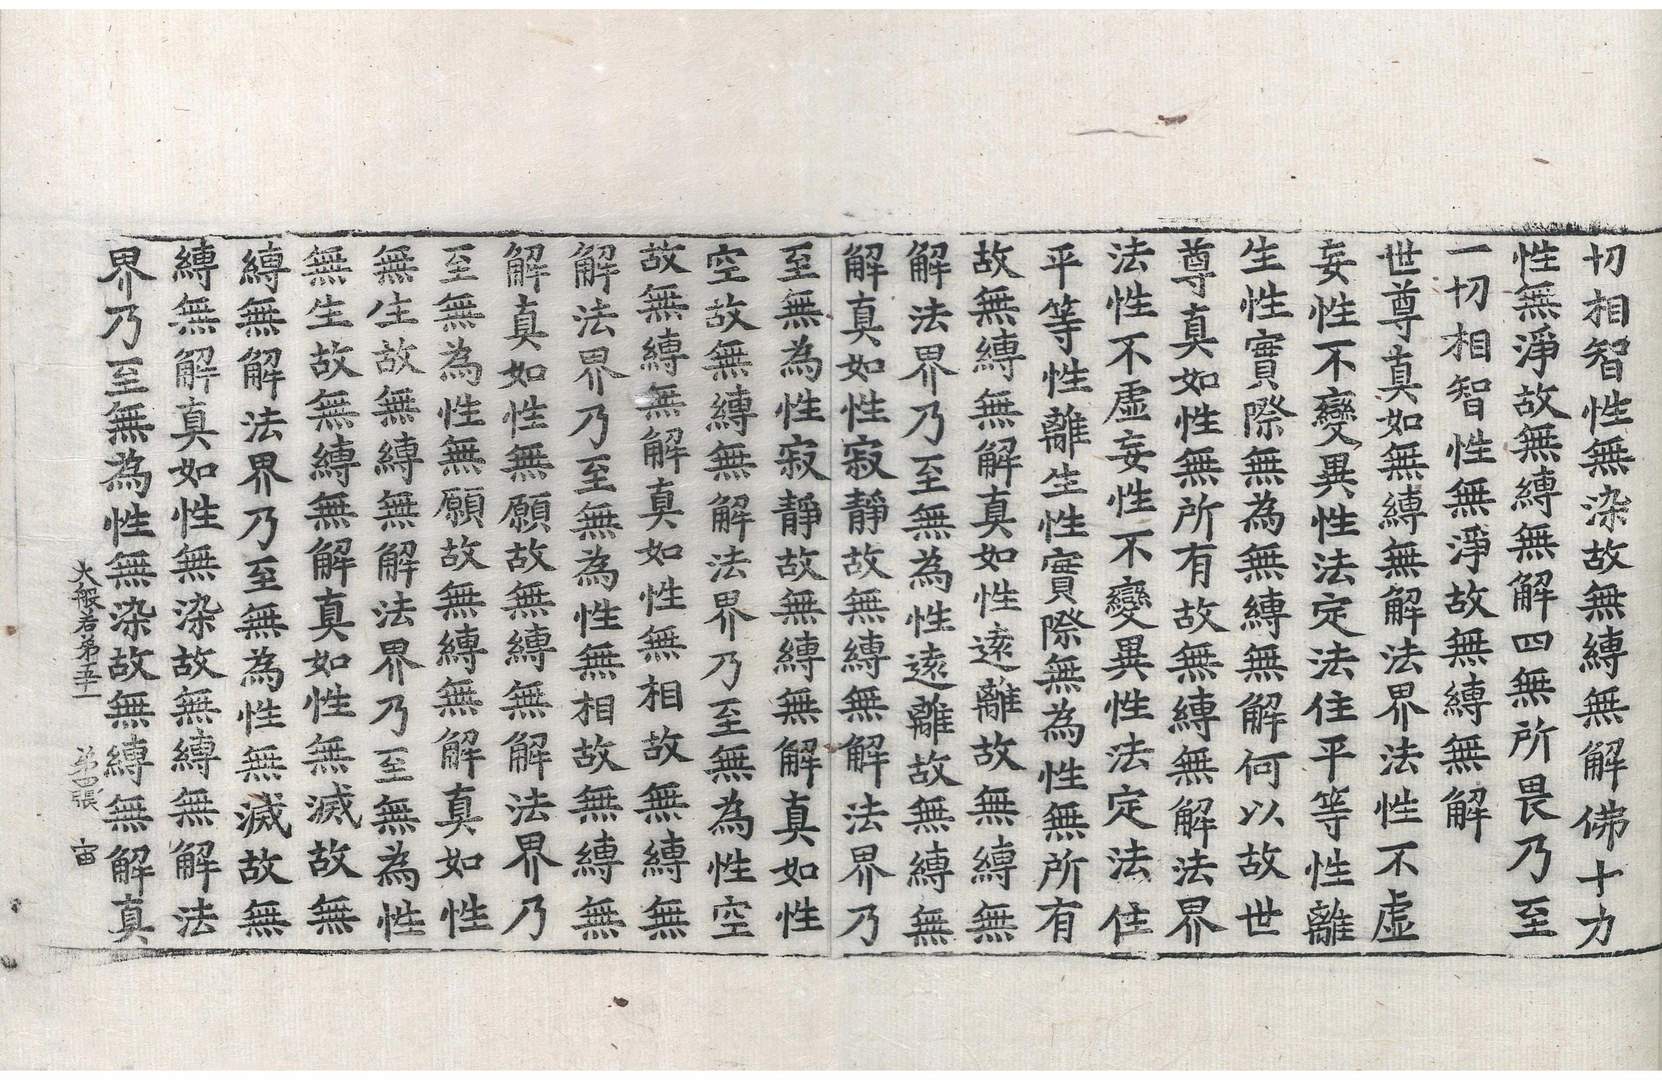 切相智性無染故無縛無解佛十力
性無淨故無縛無解四無所畏乃至
一切相智性無淨故無縛無解
世尊真如無縛無解法界法性不虛
妄性不變異性法定法住平等性離
生性實際無為無縛無解何以故世
尊真如性無所有故無縛無解法界
法性不虛妄性不變異性法定法住
平等性離生性實際無為性無所有
故無縛無解真如性遠離故無縛無
解法界乃至無為性遠離故無縛無
解真如性寂靜故無縛無解法界乃
至無為性寂靜故無縛無解真如性
空故無縛無解法界乃至無為性空
故無縛無解真如性無相故無縛無
解法界乃至無為性無相故無縛無
解真如性無願故無縛無解法界乃
至無為性無願故無縛無解真如性
無生故無縛無解法界乃至無為性
無生故無縛無解真如性無滅故無
縛無解法界乃至無為性無滅故無
縛無解真如性無染故無縛無解法
界乃至無為性無染故無縛無解真
大般若第五十一 第四張 宙